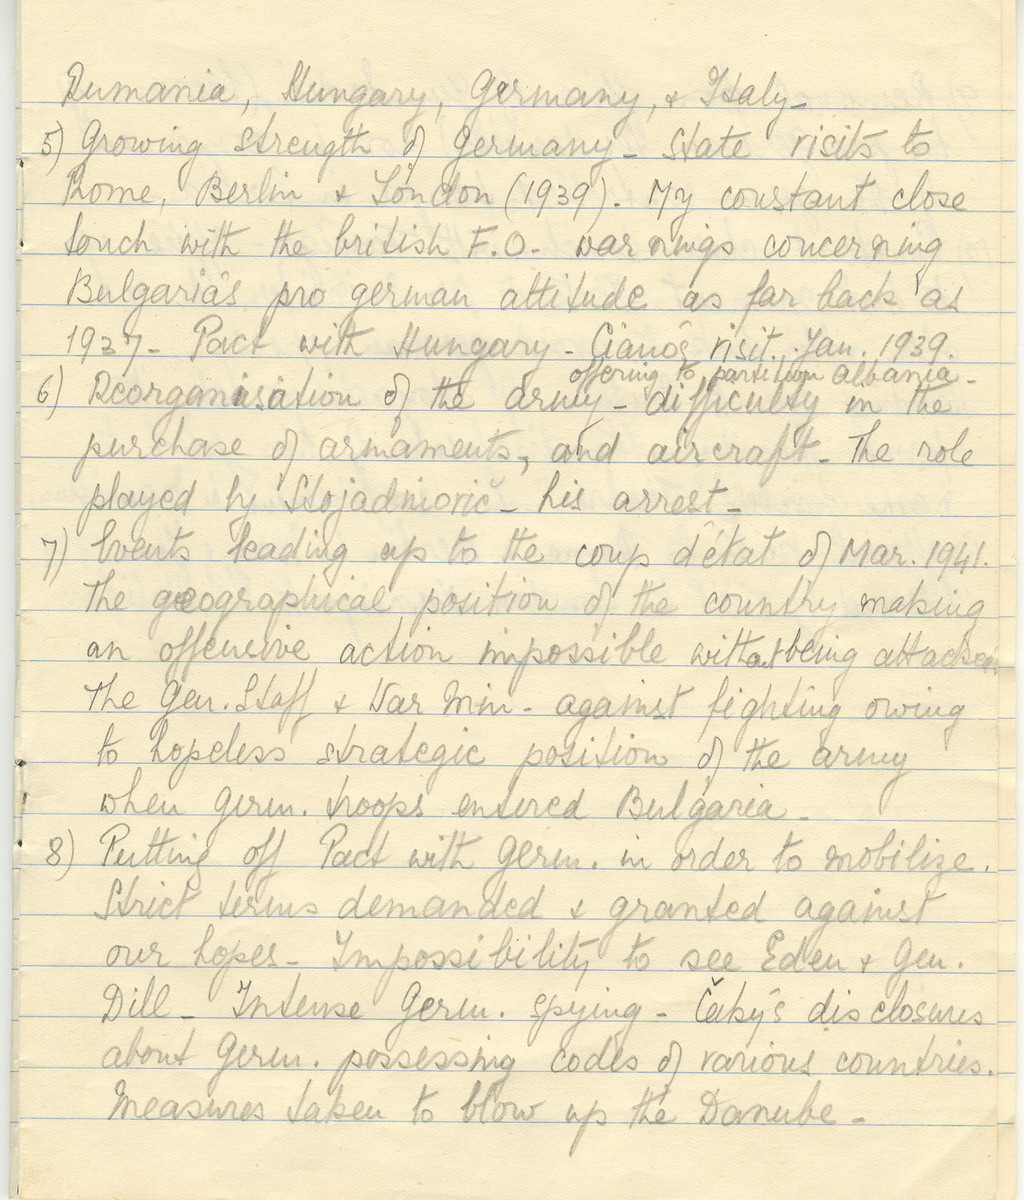 Rumania, Hungary, Germany, + Italy -
5) Growing strength of Germany - State visits to
Rome, Berlin + London (1939). My constant close
touch with the british F.O. - warnings concerning
Bulgaria's pro german attitude as far back as
1937 - Pact with Hungary - Ciano's visit. Jan. 1939.
offering to partition Albania -
6) Reorganisation of the army - difficulty in the
purchase of armaments, and aircraft - The role
played by Stojadinović - his arrest -
7) Events leading up to the coup d'état of Mar. 1941.
The geographical position of the country making
an offencive action impossible without being attacked
The Gen. Staff + War Min - against fighting owing
to hopeless strategic position of the army
when Germ. troops entered Bulgaria -
8) Putting off Pact with Germ. in order to mobilize.
Strict terms demanded + granted against
our hopes - Impossibility to see Eden + Gen.
Dill - Intense Germ. spying - Čaky's disclosures
about Germ. possessing codes of various countries.
Measures taken to blow up the Danube -